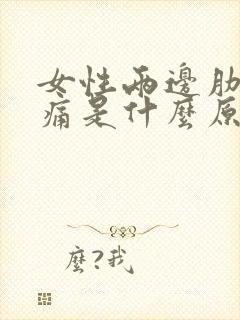 女性兩邊肋
痛是什麼原
麼?我